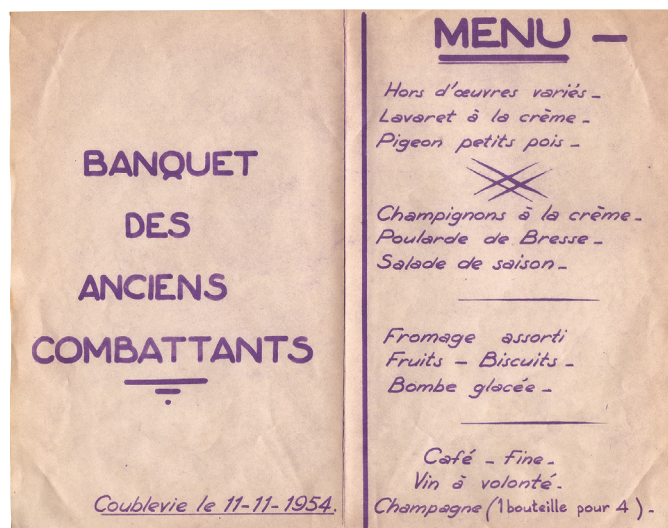 BANQUET
DES
ANCIENS
COMBATTANTS
Coublevie le 11-11-1954.
MENU -
Hors d'œuvres variés -
Lavaret à la crème -
Pigeon petits pois -
Champignons à la crème -
Poularde de Bresse -
Salade de saison -
Fromage assorti
Fruits - Biscuits -
Bombe glacée -
Café - Fine -
Vin à volonté -
Champagne (1 bouteille pour 4) -